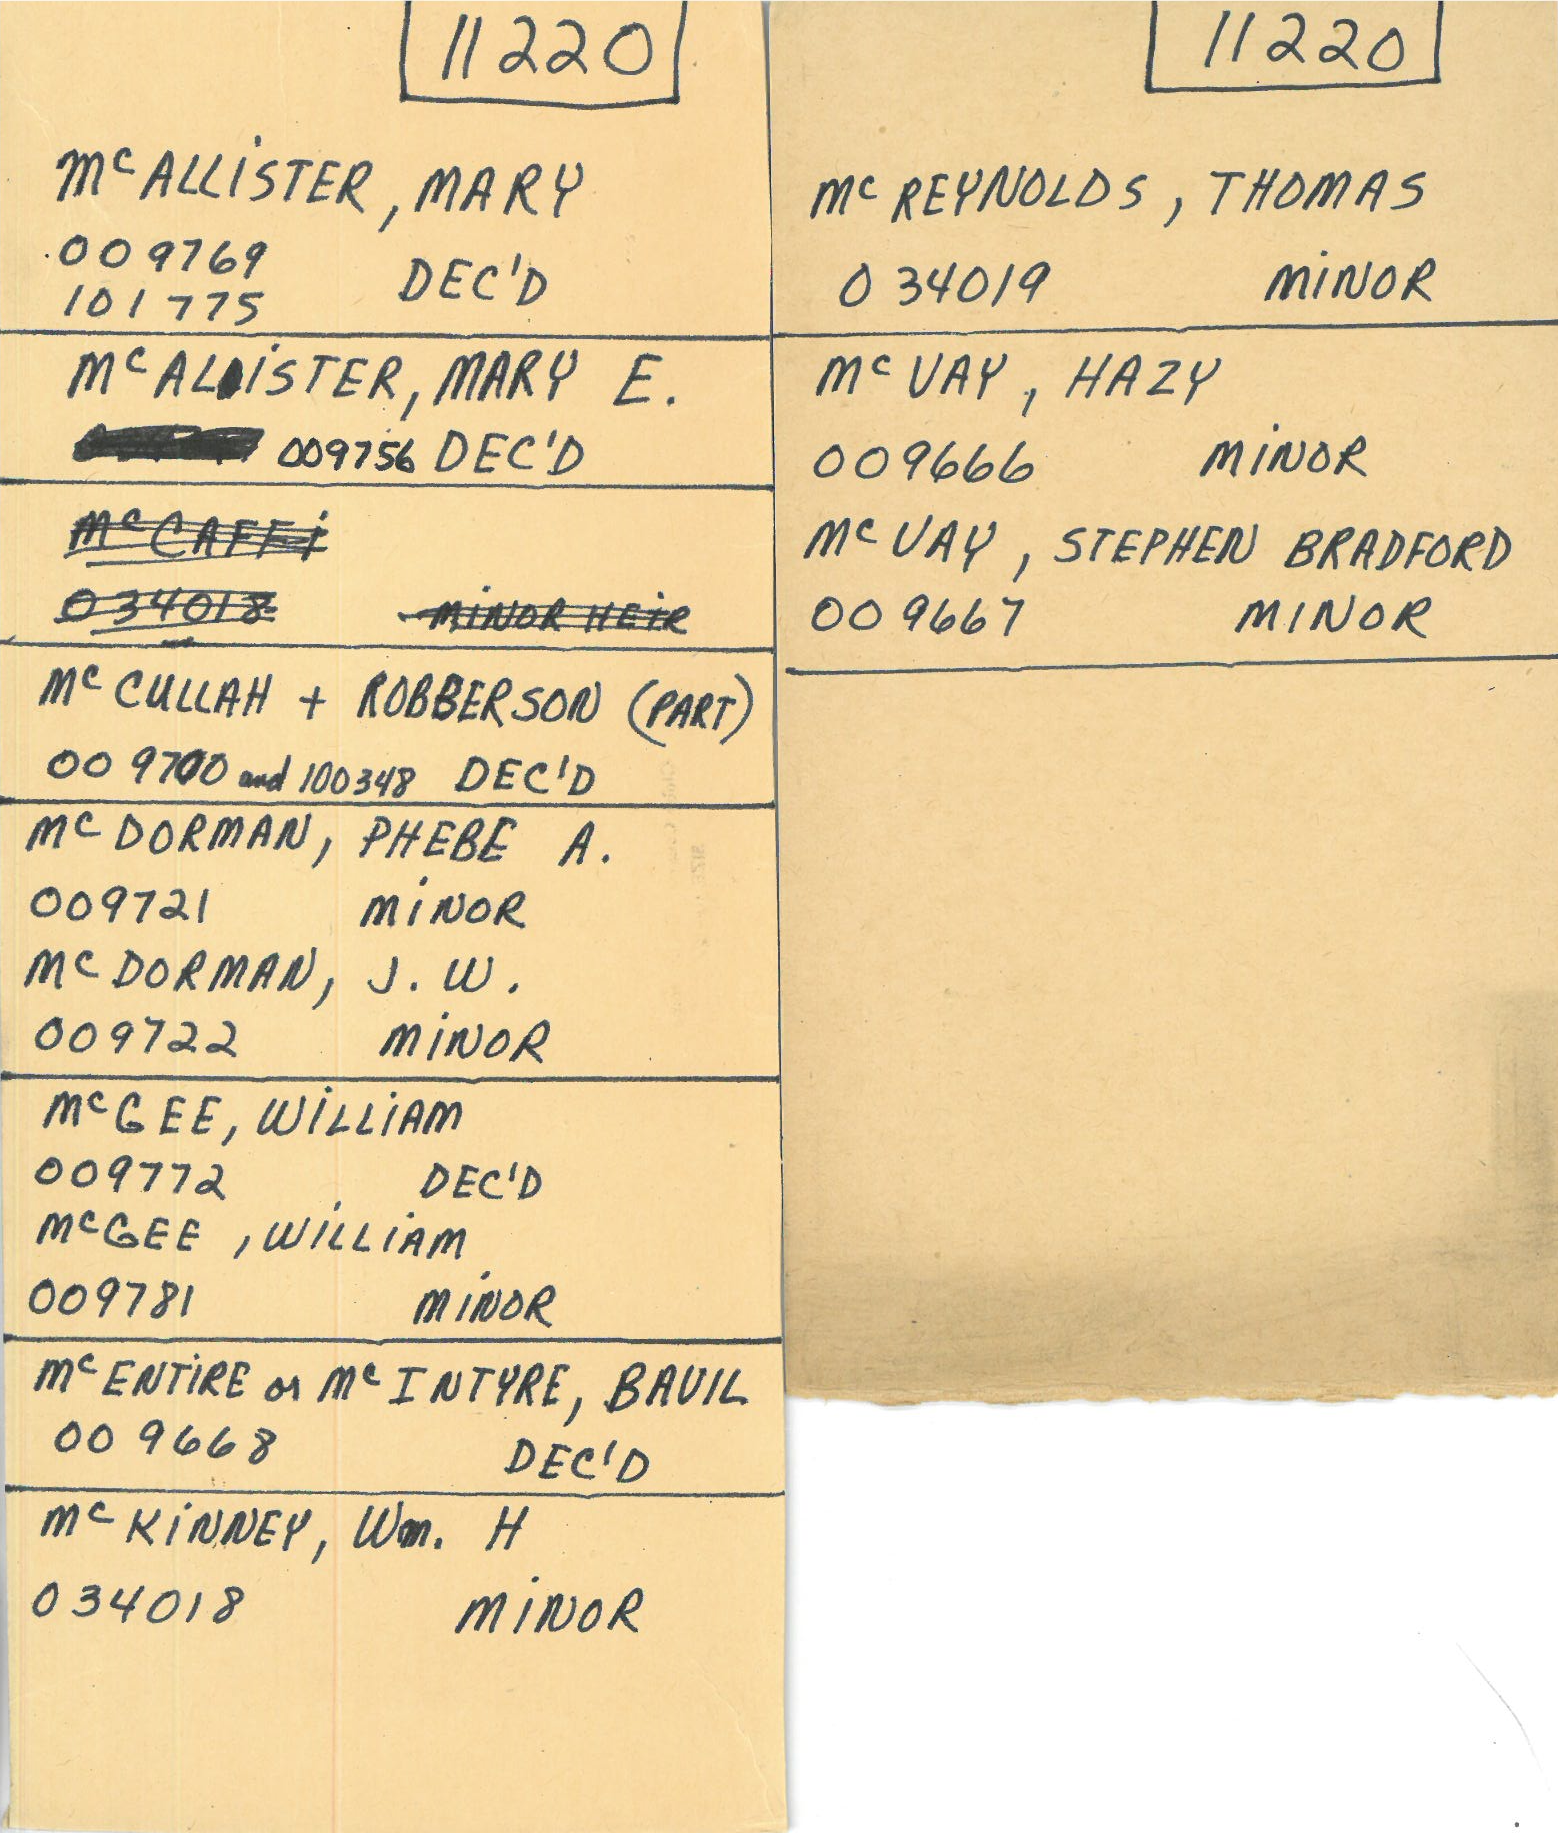 11220
McALLiSTER, MARY
009769
101775 DEC'D
McALiSTER, MARY E.
009756 DEC'D
McCAFFi
034018 MiNOR HEiR
McCULLAH + ROBBERSON (PART)
009700 and 100348 DEC'D
McDORMAN, PHEBE A.
009721 MiNOR
McDORMAN, J. W.
009722 MiNOR
McGEE, WiLLiAM
009772 DEC'D
McGEE, WiLLiAM
009781 MiNOR
McENTiRE or McINTYRE, BAVIL
009668 DEC'D
McKiNNEY, Wm. H
034018 MiNOR
11220
McREYNOLDS, THOMAS
034019 MiNOR
McVAY, HAZY
009666 MiNOR
McVAY, STEPHEN BRADFORD
009667 MINOR